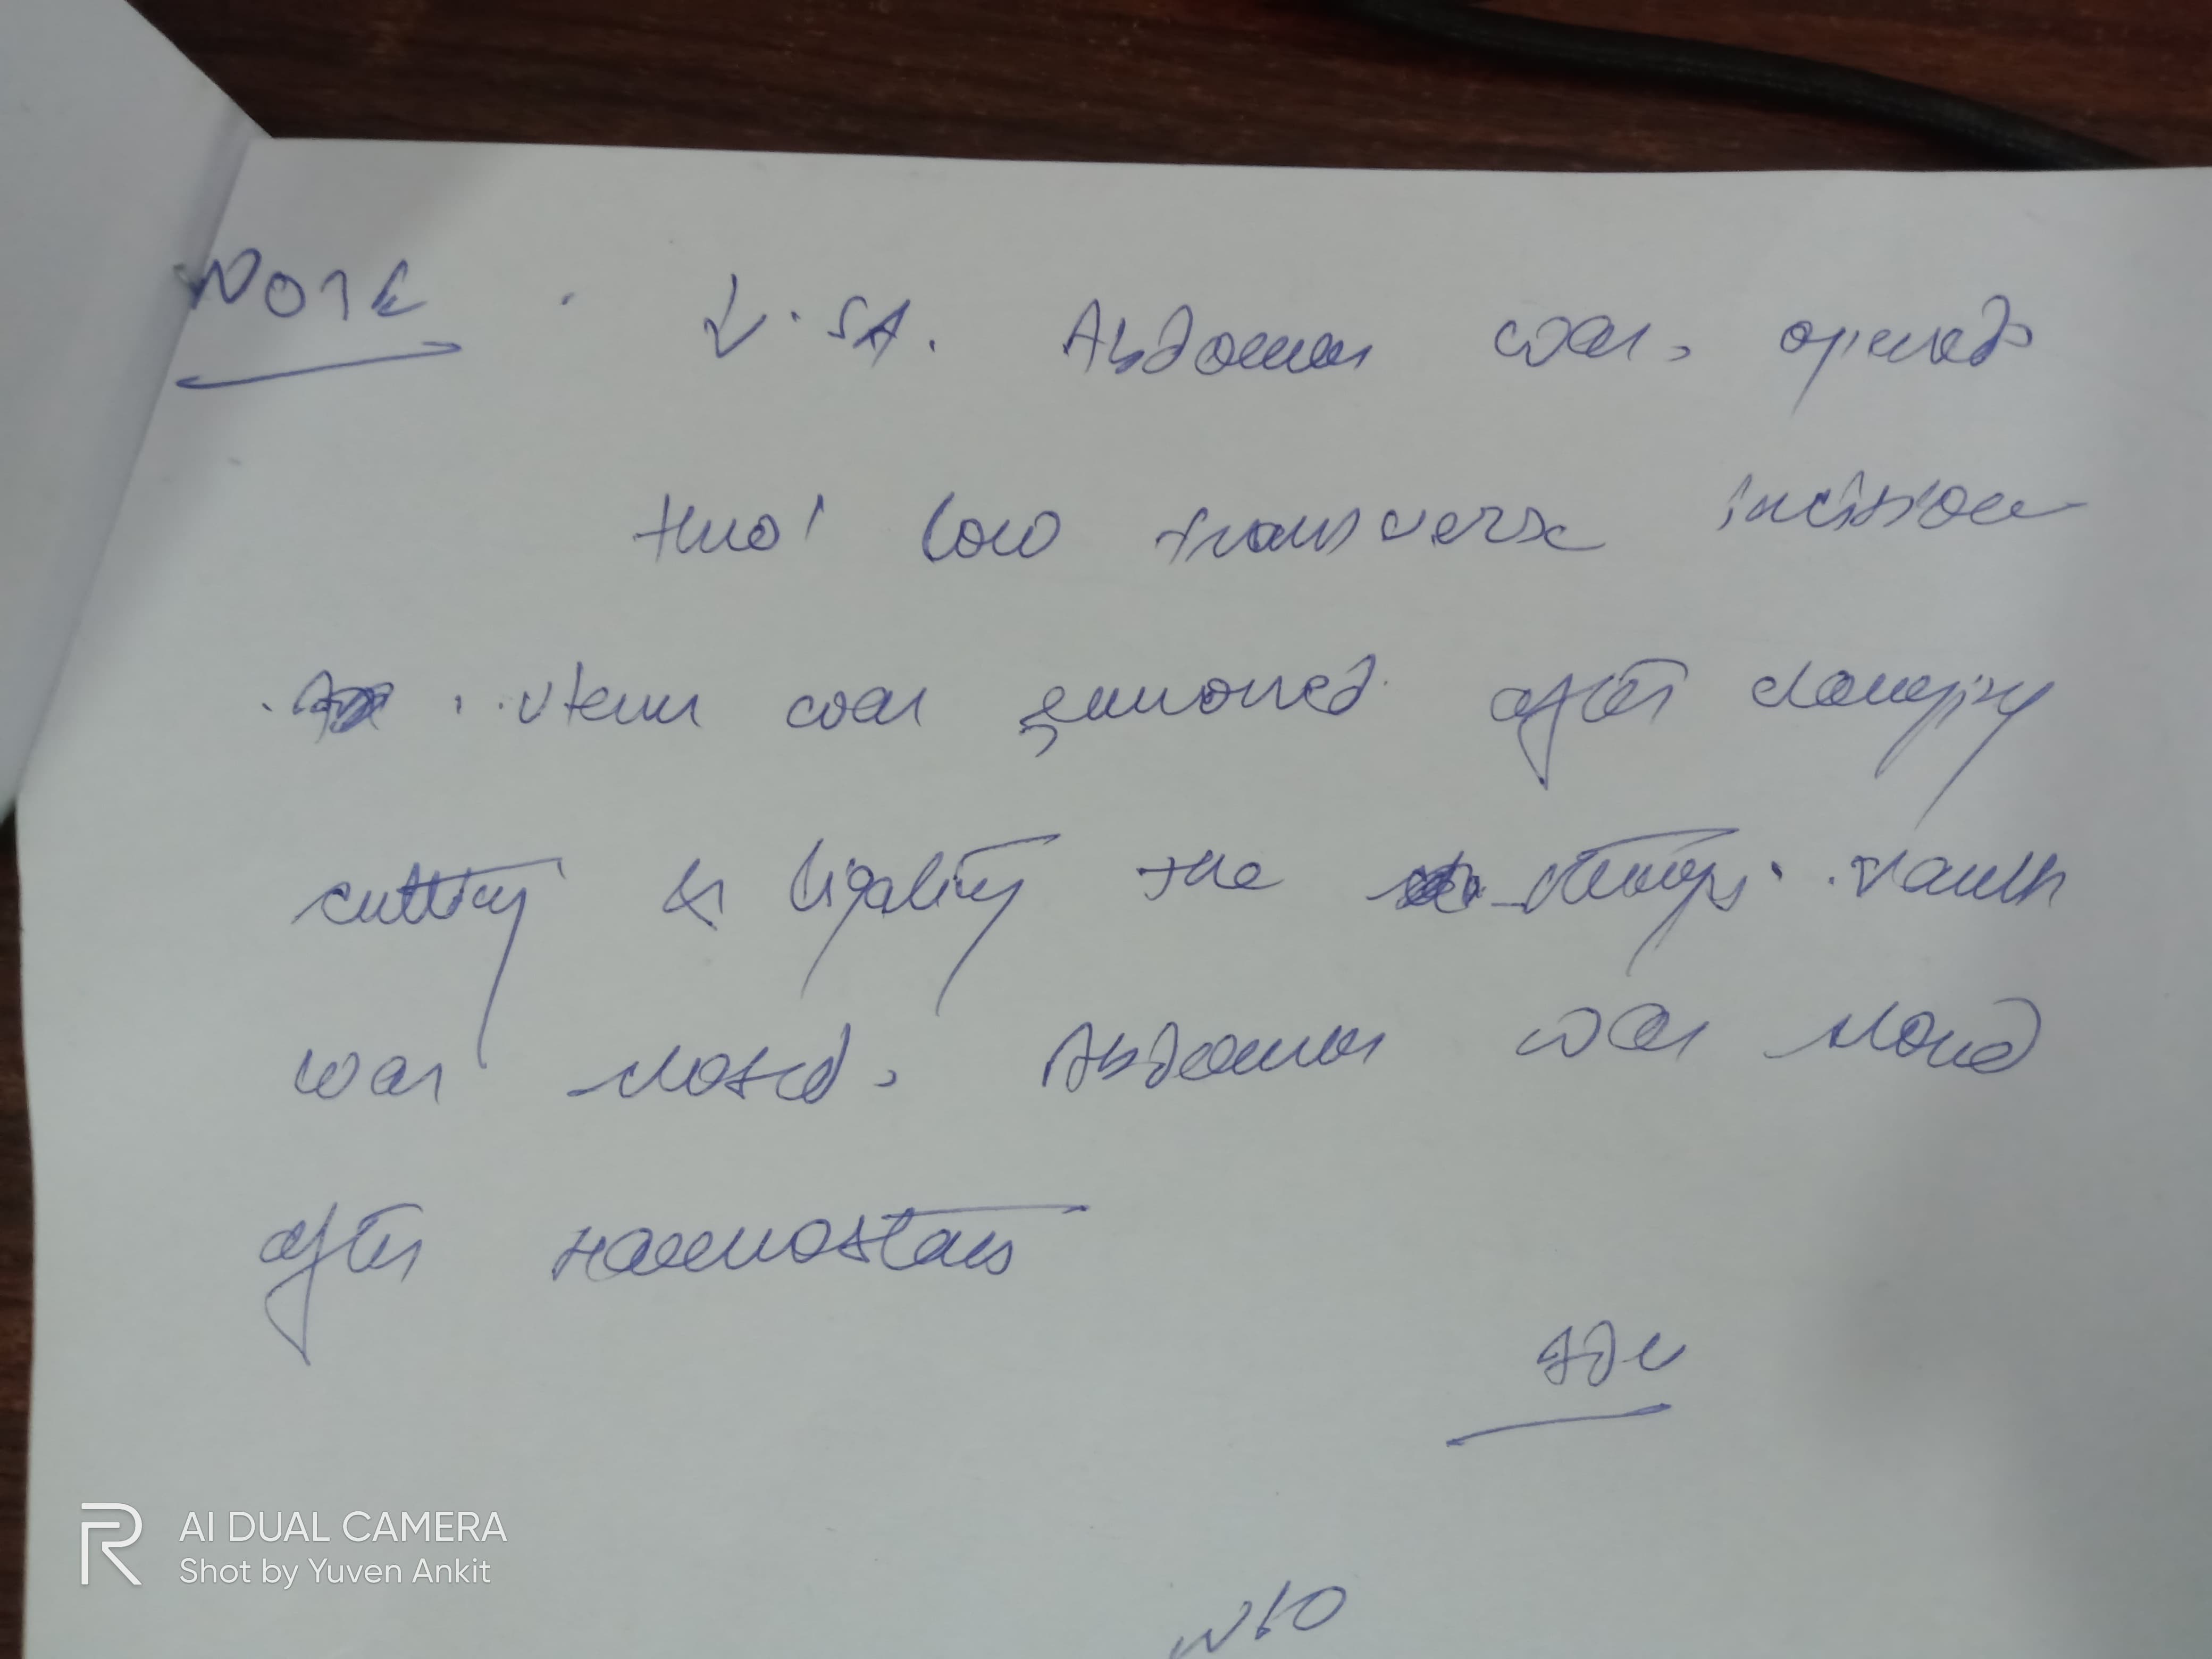 Note . V. SA. Abdomen was opened
thro' low transverse incission
uterus was removed after clamping
cutting & ligating the stumps. vault
was closed. Abdomen was closed
after Haemostasis
AI DUAL CAMERA
Shot by Yuven Ankit